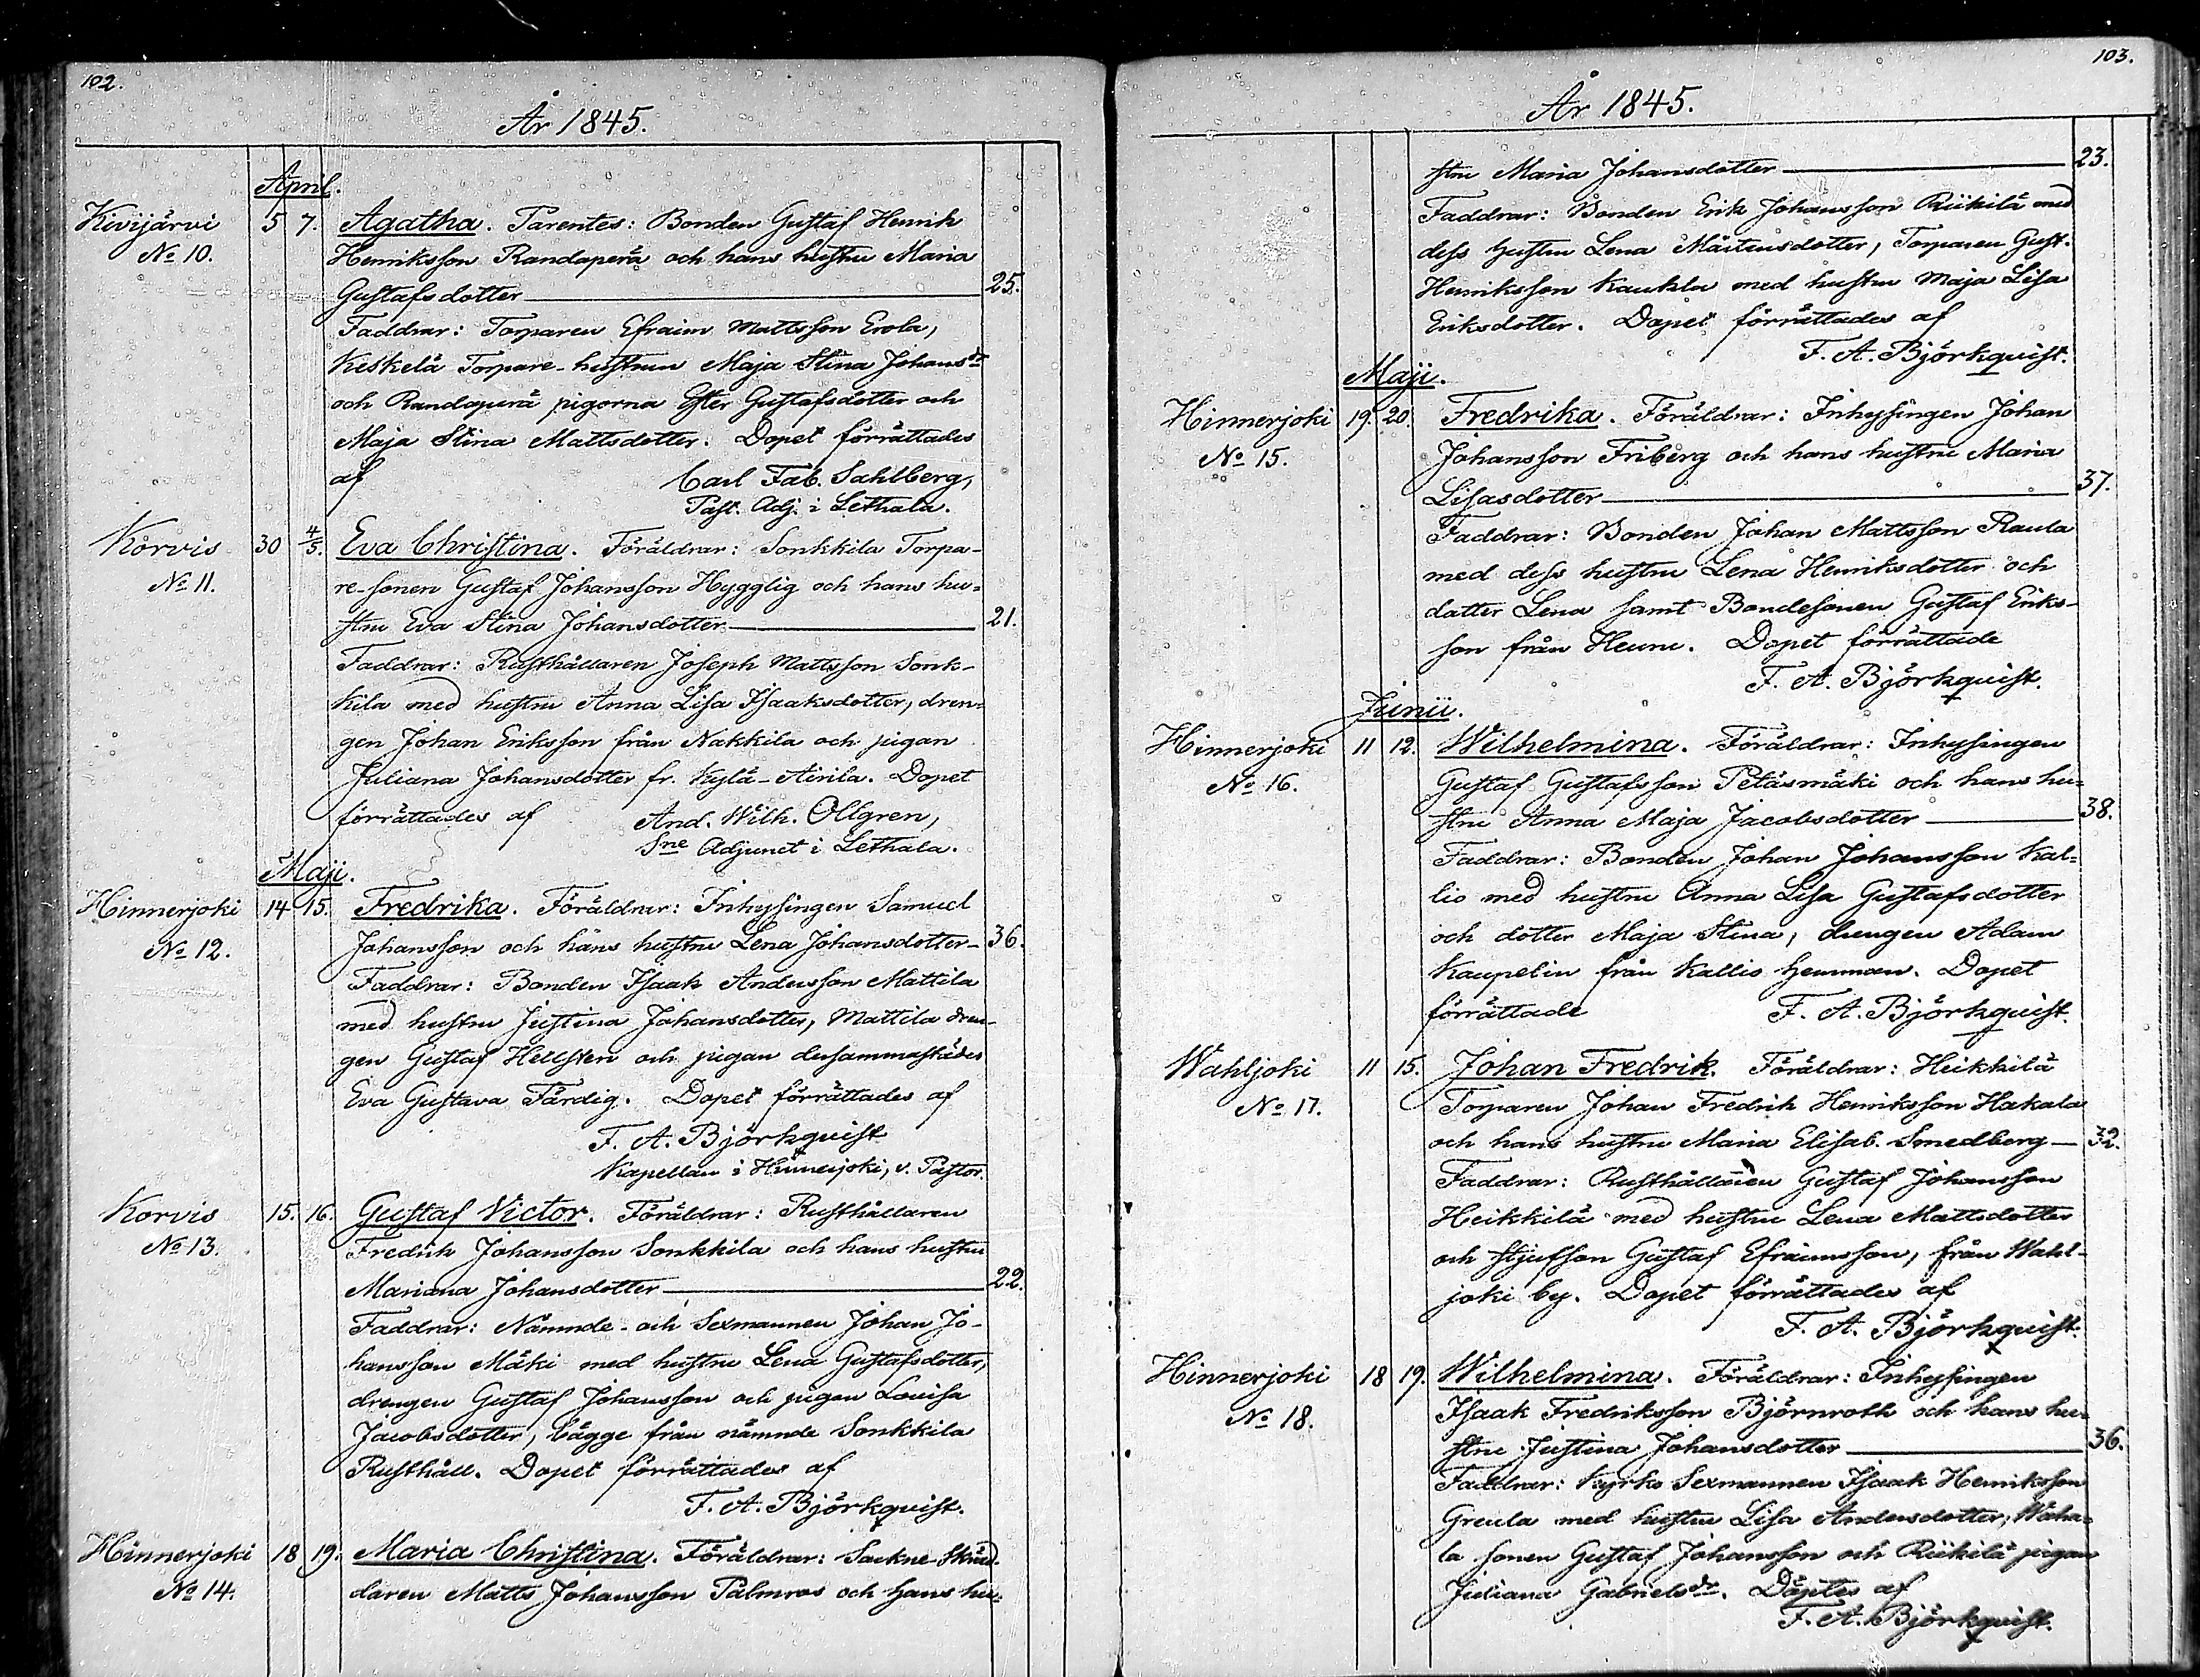 102.
År 1845.
April.
Kivijärvi 5 7. Agatha. Parentes: Bonden Gustaf Henrik
No 10. Henriksson Randaperä och hans hustru Maria
Gustafsdotter 25.
Faddrar: Torparen Efraim Mattsson Erola,
Keskelä Torpare-hustrun Maja Stina Johansdr
och Randaperä pigorna Ester Gustafsdotter och
Maja Stina Mattsdotter. Dopet förrättades
af Carl Fab. Sahlberg,
Past. Adj. i Lethala.
Korvis 30 4/5. Eva Christina. Föräldrar: Sonkkila Torpa-
No 11. re-sonen Gustaf Johansson Hygglig och hans hu-
stru Eva Stina Johansdotter 21.
Faddrar: Rusthållaren Joseph Mattsson Sonk-
kila med hustru Anna Lisa Isaaksdotter, dren-
gen Johan Eriksson från Nakkila och pigan
Juliana Johansdotter fr. Kylä-Airila. Dopet
förrättades af And. Wilh. Ollgren,
Sne Adjunct i Lethala.
Maji.
Hinnerjoki 14 15. Fredrika. Föräldrar: Inhysingen Samuel
No 12. Johansson och hans hustru Lena Johansdotter 36.
Faddrar: Bonden Isaak Andersson Mattila
med hustru Justina Johansdotter, Mattila dren-
gen Gustaf Hellsten och pigan dersammastädes
Eva Gustava Färdig. Dopet förrättades af
F. A. Björkquist
Kapellan i Hinnerjoki, v. Pastor.
Korvis 15. 16. Gustaf Victor. Föräldrar: Rusthållaren
No 13. Fredrik Johansson Sonkkila och hans hustru
Mariana Johansdotter 22.
Faddrar: Nämnde- och Sexmannen Johan Jo-
hansson Mäki med hustru Lena Gustafsdotter,
drengen Gustaf Johansson och pigan Lovisa
Jacobsdotter, bägge från nämnde Sonkkila
Rusthåll. Dopet förrättades af
F. A. Björkquist.
Hinnerjoki 18 19. Maria Christina. Föräldrar: Sockne-Skräd-
No 14. daren Matts Johansson Palmros och hans hu-
103.
År 1845.
stru Maria Johansdotter 23.
Faddrar: Bonden Erik Johansson Riikilä med
dess hustru Lena Mårtensdotter, Torparen Gust.
Henriksson Kaukla med hustru Maja Lisa
Eriksdotter. Dopet förrättades af
F. A. Björkquist.
Maji.
Hinnerjoki 19. 20. Fredrika. Föräldrar: Inhysingen Johan
No 15. Johansson Friberg och hans hustru Maria
Lisasdotter 37.
Faddrar: Bonden Johan Mattsson Raula
med dess hustru Lena Henriksdotter och
dotter Lena samt Bondesonen Gustaf Eriks-
son från Heune. Dopet förrättade
F. A. Björkquist.
Junii.
Hinnerjoki 11 12. Wilhelmina. Föräldrar: Inhysingen
No 16. Gustaf Gustafsson Petäsmäki och hans hu-
stru Anna Maja Jacobsdotter 38.
Faddrar: Bonden Johan Johansson Kal-
lio med hustru Anna Lisa Gustafsdotter
och dotter Maja Stina, drengen Adam
Kaupelin från Kallio hemman. Dopet
förrättade F. A. Björkquist.
Wahljoki 11 15. Johan Fredrik. Föräldrar: Heikkilä
No 17. Torparen Johan Fredrik Henriksson Hakala
och hans hustru Maria Elisab. Smedberg 32.
Faddrar: Rusthållaren Gustaf Johansson
Heikkilä med hustru Lena Mattsdotter
och styfson Gustaf Efraimsson, från Wahl-
joki by. Dopet förrättades af
F. A. Björkquist.
Hinnerjoki 18 19. Wilhelmina. Föräldrar: Inhysingen
No 18. Isaak Fredriksson Björnroth och hans hu-
stru Justina Johansdotter 36.
Faddrar: Kyrko Sexmannen Isaak Henriksson
Greula med hustru Lisa Andersdotter, Waha-
la sonen Gustaf Johansson och Riikilä pigan
Juliana Gabrielsdr. Döptes af
F. A. Björkquist.